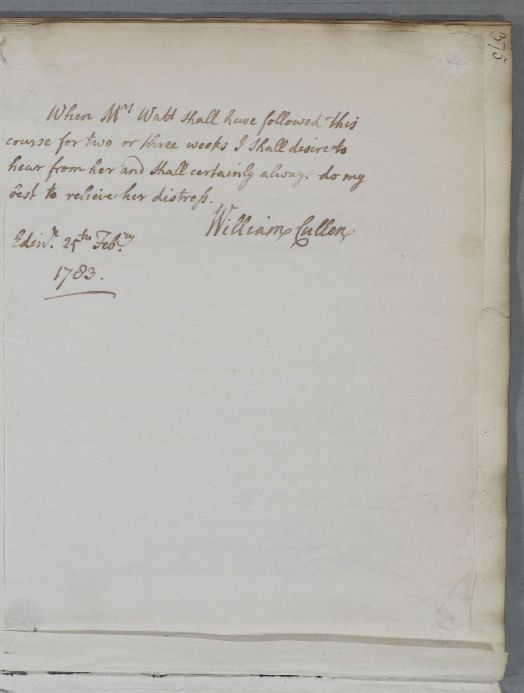 375
When Mrs Watt shall have followed this
course for two or three weeks I shall desire to
hear from her and shall certainly always do my
best to relieve her distress.
William Cullen
Edinr. 25th Febry
1783.